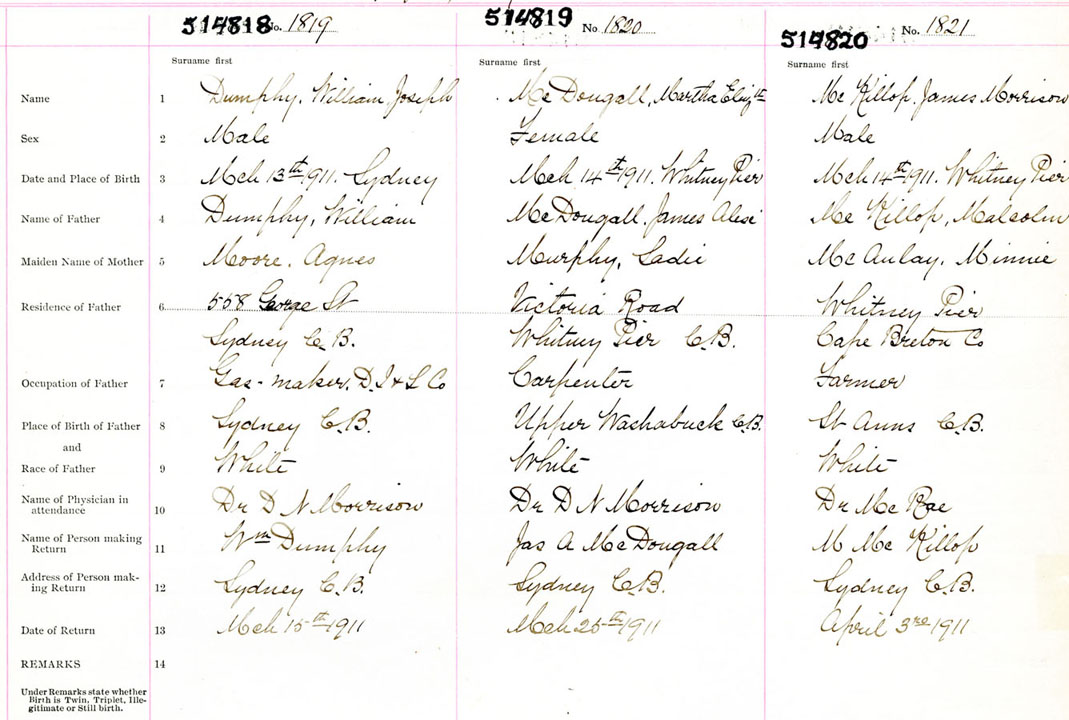 514818 No. 1819 514819 No 1820 514820 No. 1821
Surname first Surname first Surname first
Name 1 Dumphy, William Joseph McDougall, Martha Elizth McKillop, James Morrison
Sex 2 Male Female Male
Date and Place of Birth 3 Mch 13th 1911. Sydney Mch 14th 1911. Whitney Pier Mch 14th 1911. Whitney Pier
Name of Father 4 Dumphy, William McDougall, James McKillop, Malcolm
Maiden Name of Mother 5 Moore. Agnes Murphy, Sadie McAulay, Minnie
Residence of Father 6 558 George St Victoria Road Whitney Pier
Sydney C.B. Whitney Pier C.B. Cape Breton Co
Occupation of Father 7 Gas-maker. D. I & S Co Carpenter Farmer
Place of Birth of Father 8 Sydney C.B. Upper Washabuck C.B. St Anns C.B.
and
Race of Father 9 White White White
Name of Physician in
attendance 10 Dr D N Morrison Dr D N Morrison Dr McRae
Name of Person making
Return 11 Wm Dumphy Jas A McDougall M McKillop
Address of Person mak-
ing Return 12 Sydney C.B. Sydney C.B. Sydney C.B.
Date of Return 13 Mch 15th 1911 Mch 25th 1911 April 3rd 1911
REMARKS 14
Under Remarks state whether
Birth is Twin, Triplet, Ille-
gitimate or Still birth.